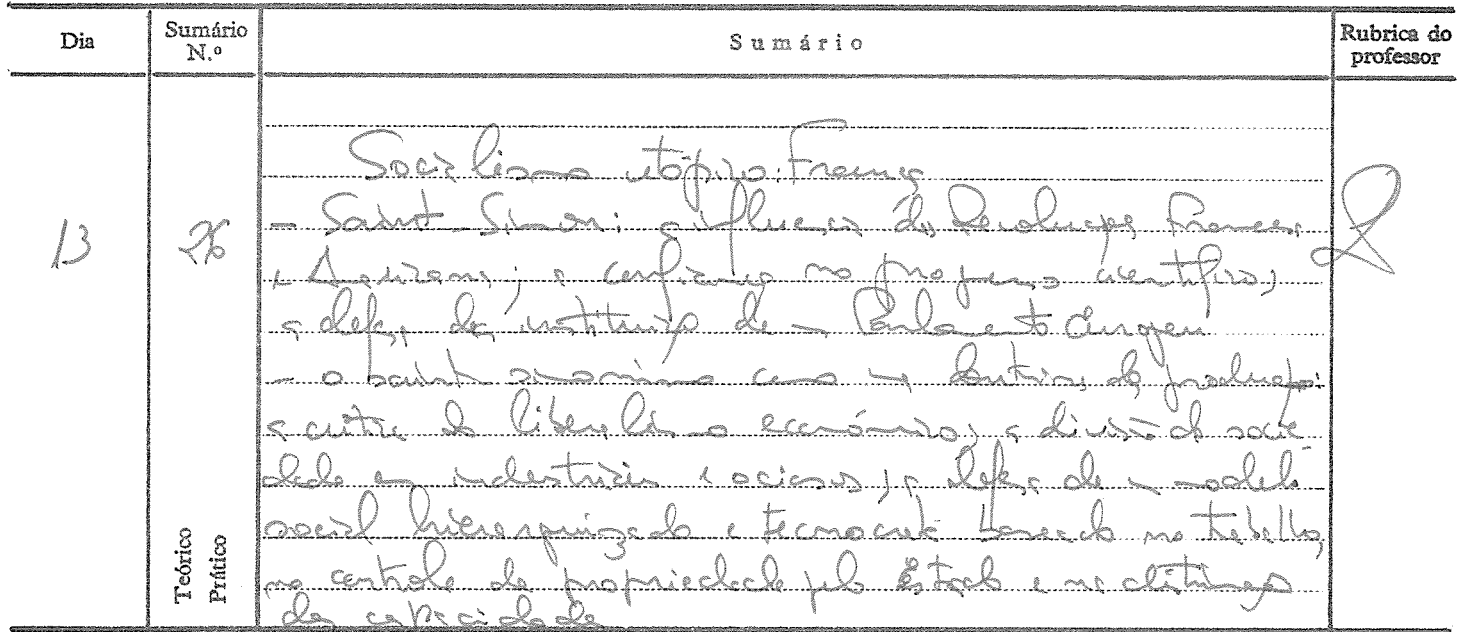 Dia
Sumário N.º
Sumário
Rubrica do professor
13
26
Socialismo utópico: França
- Saint-Simon: a influência das Revoluções Francesa
e Americana; a confiança no progresso científico;
a defesa da instituição de um Parlamento Europeu
- o saint simonismo como uma doutrina da produção:
a crítica do liberalismo económico; a divisão da socie
dade em industriais e ociosos; a defesa de um modelo
social hierarquizado e tecnocrata baseado no trabalho,
no controle da propriedade pelo Estado e na
da capacidade
Teórico
Prático